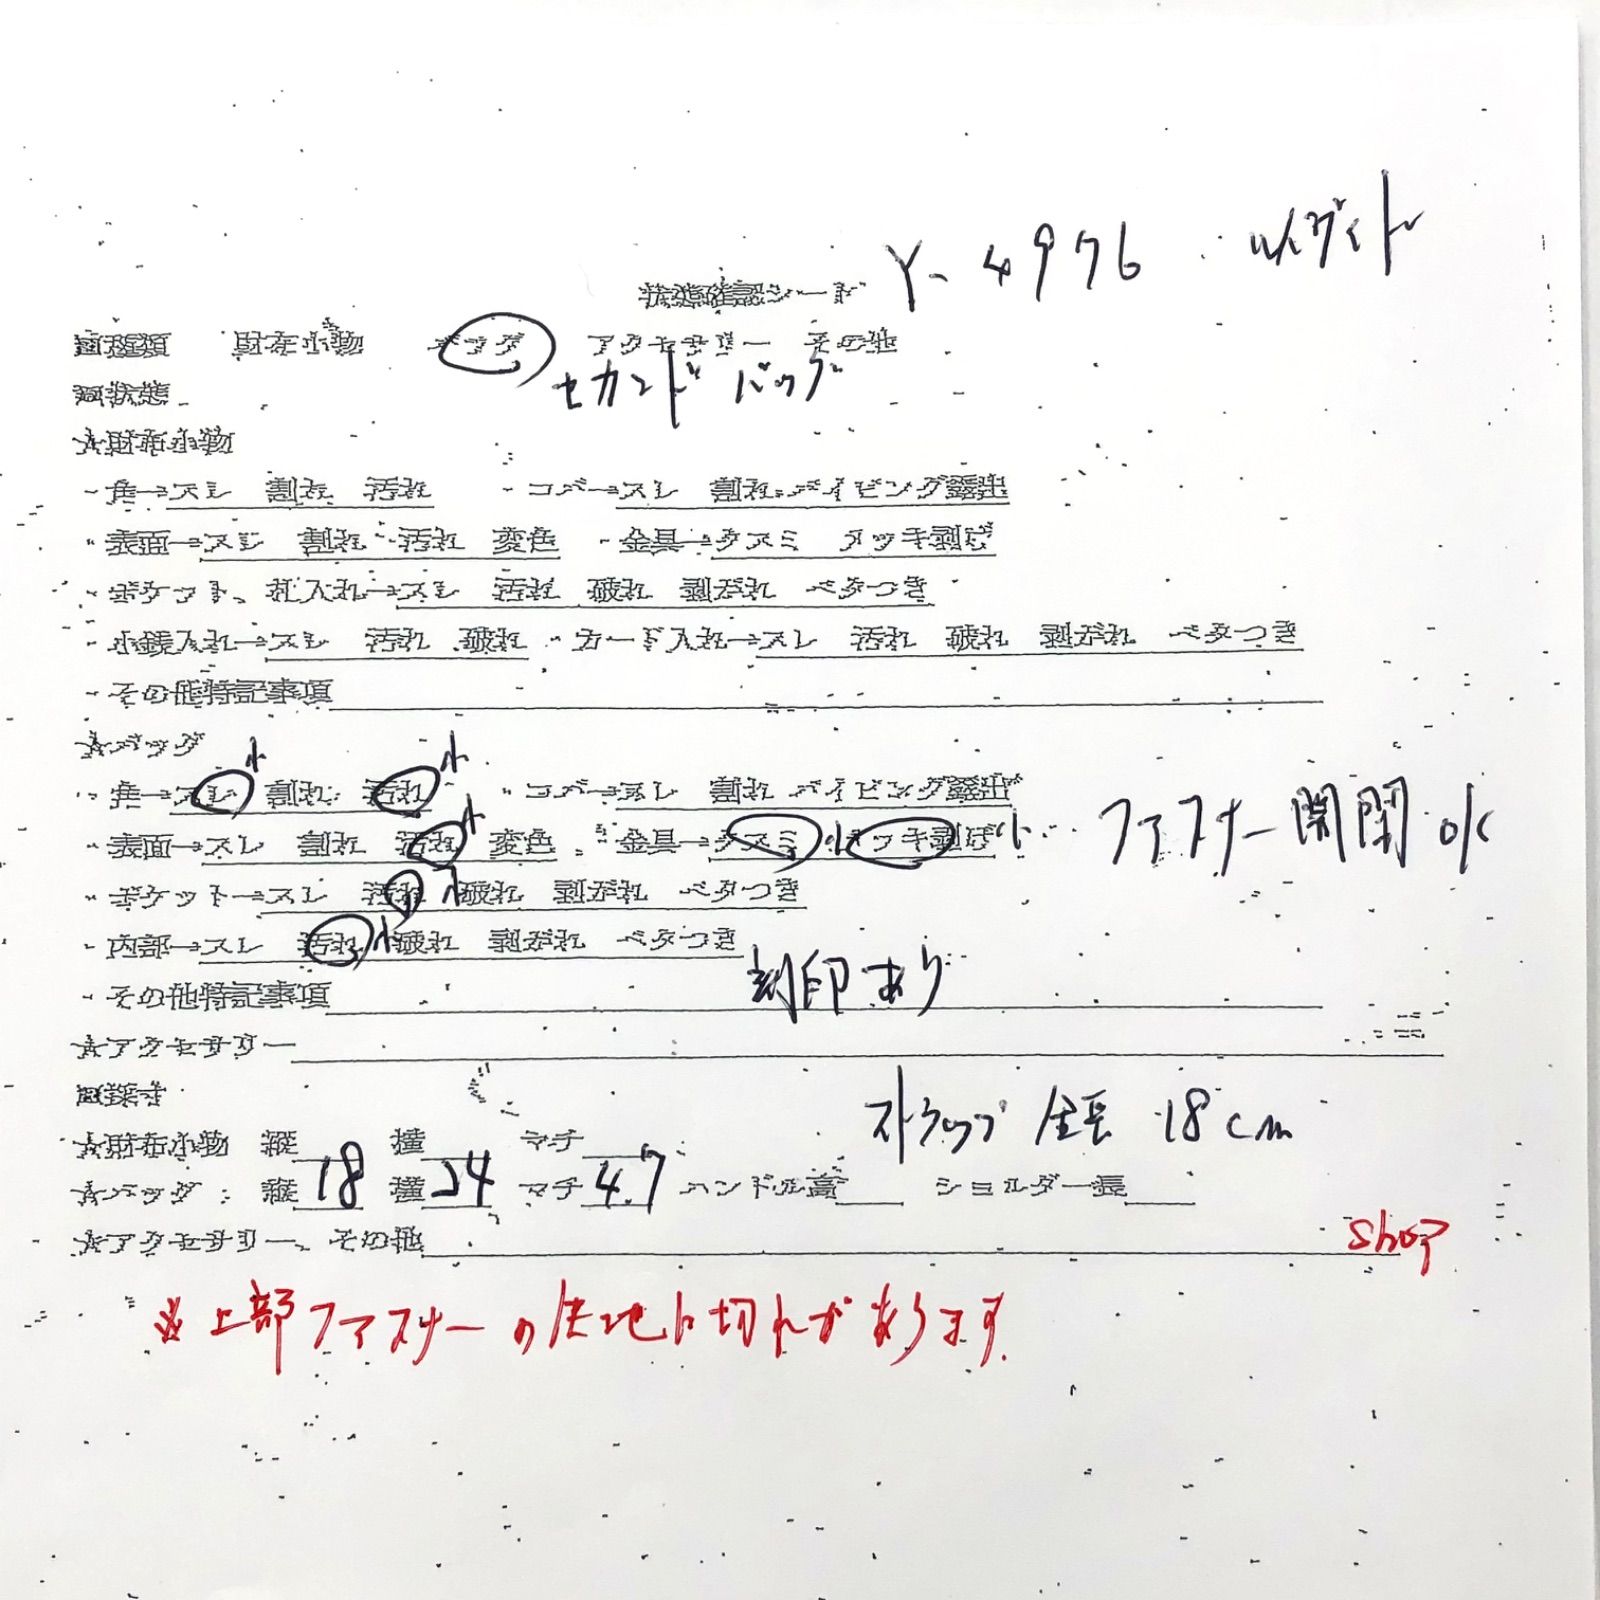 状態確認シート Y-4976 ルイヴィト
□種類 財布小物 バッグ アクセサリー その他
セカンドバッグ
□状態
☆財布小物
・角→スレ 割れ 汚れ ・コバ→スレ 割れ パイピング露出
・表面→スレ 割れ 汚れ 変色 ・金具→クスミ メッキ剥げ
・ポケット、札入れ→スレ 汚れ 破れ 剥がれ ベタつき
・小銭入れ→スレ 汚れ 破れ ・カード入れ→スレ 汚れ 破れ 剥がれ ベタつき
・その他特記事項
☆バッグ
・角→スレ小 割れ 汚れ小 ・コバ→スレ 割れ パイピング露出
・表面→スレ 割れ 汚れ小 変色 ・金具→クスミ小 メッキ剥げ小 ファスナー開閉ok
・ポケット→スレ 汚れ小 破れ 剥がれ ベタつき
・内部→スレ 汚れ小 破れ 剥がれ ベタつき
・その他特記事項 刻印あり
☆アクセサリー
□採寸
ストラップ 全長 18cm
☆財布小物 縦 横 マチ
☆バッグ:縦18 横24 マチ4.7 ハンドル高 ショルダー長
☆アクセサリー、その他
shop
※上部ファスナーの生地に切れがあります